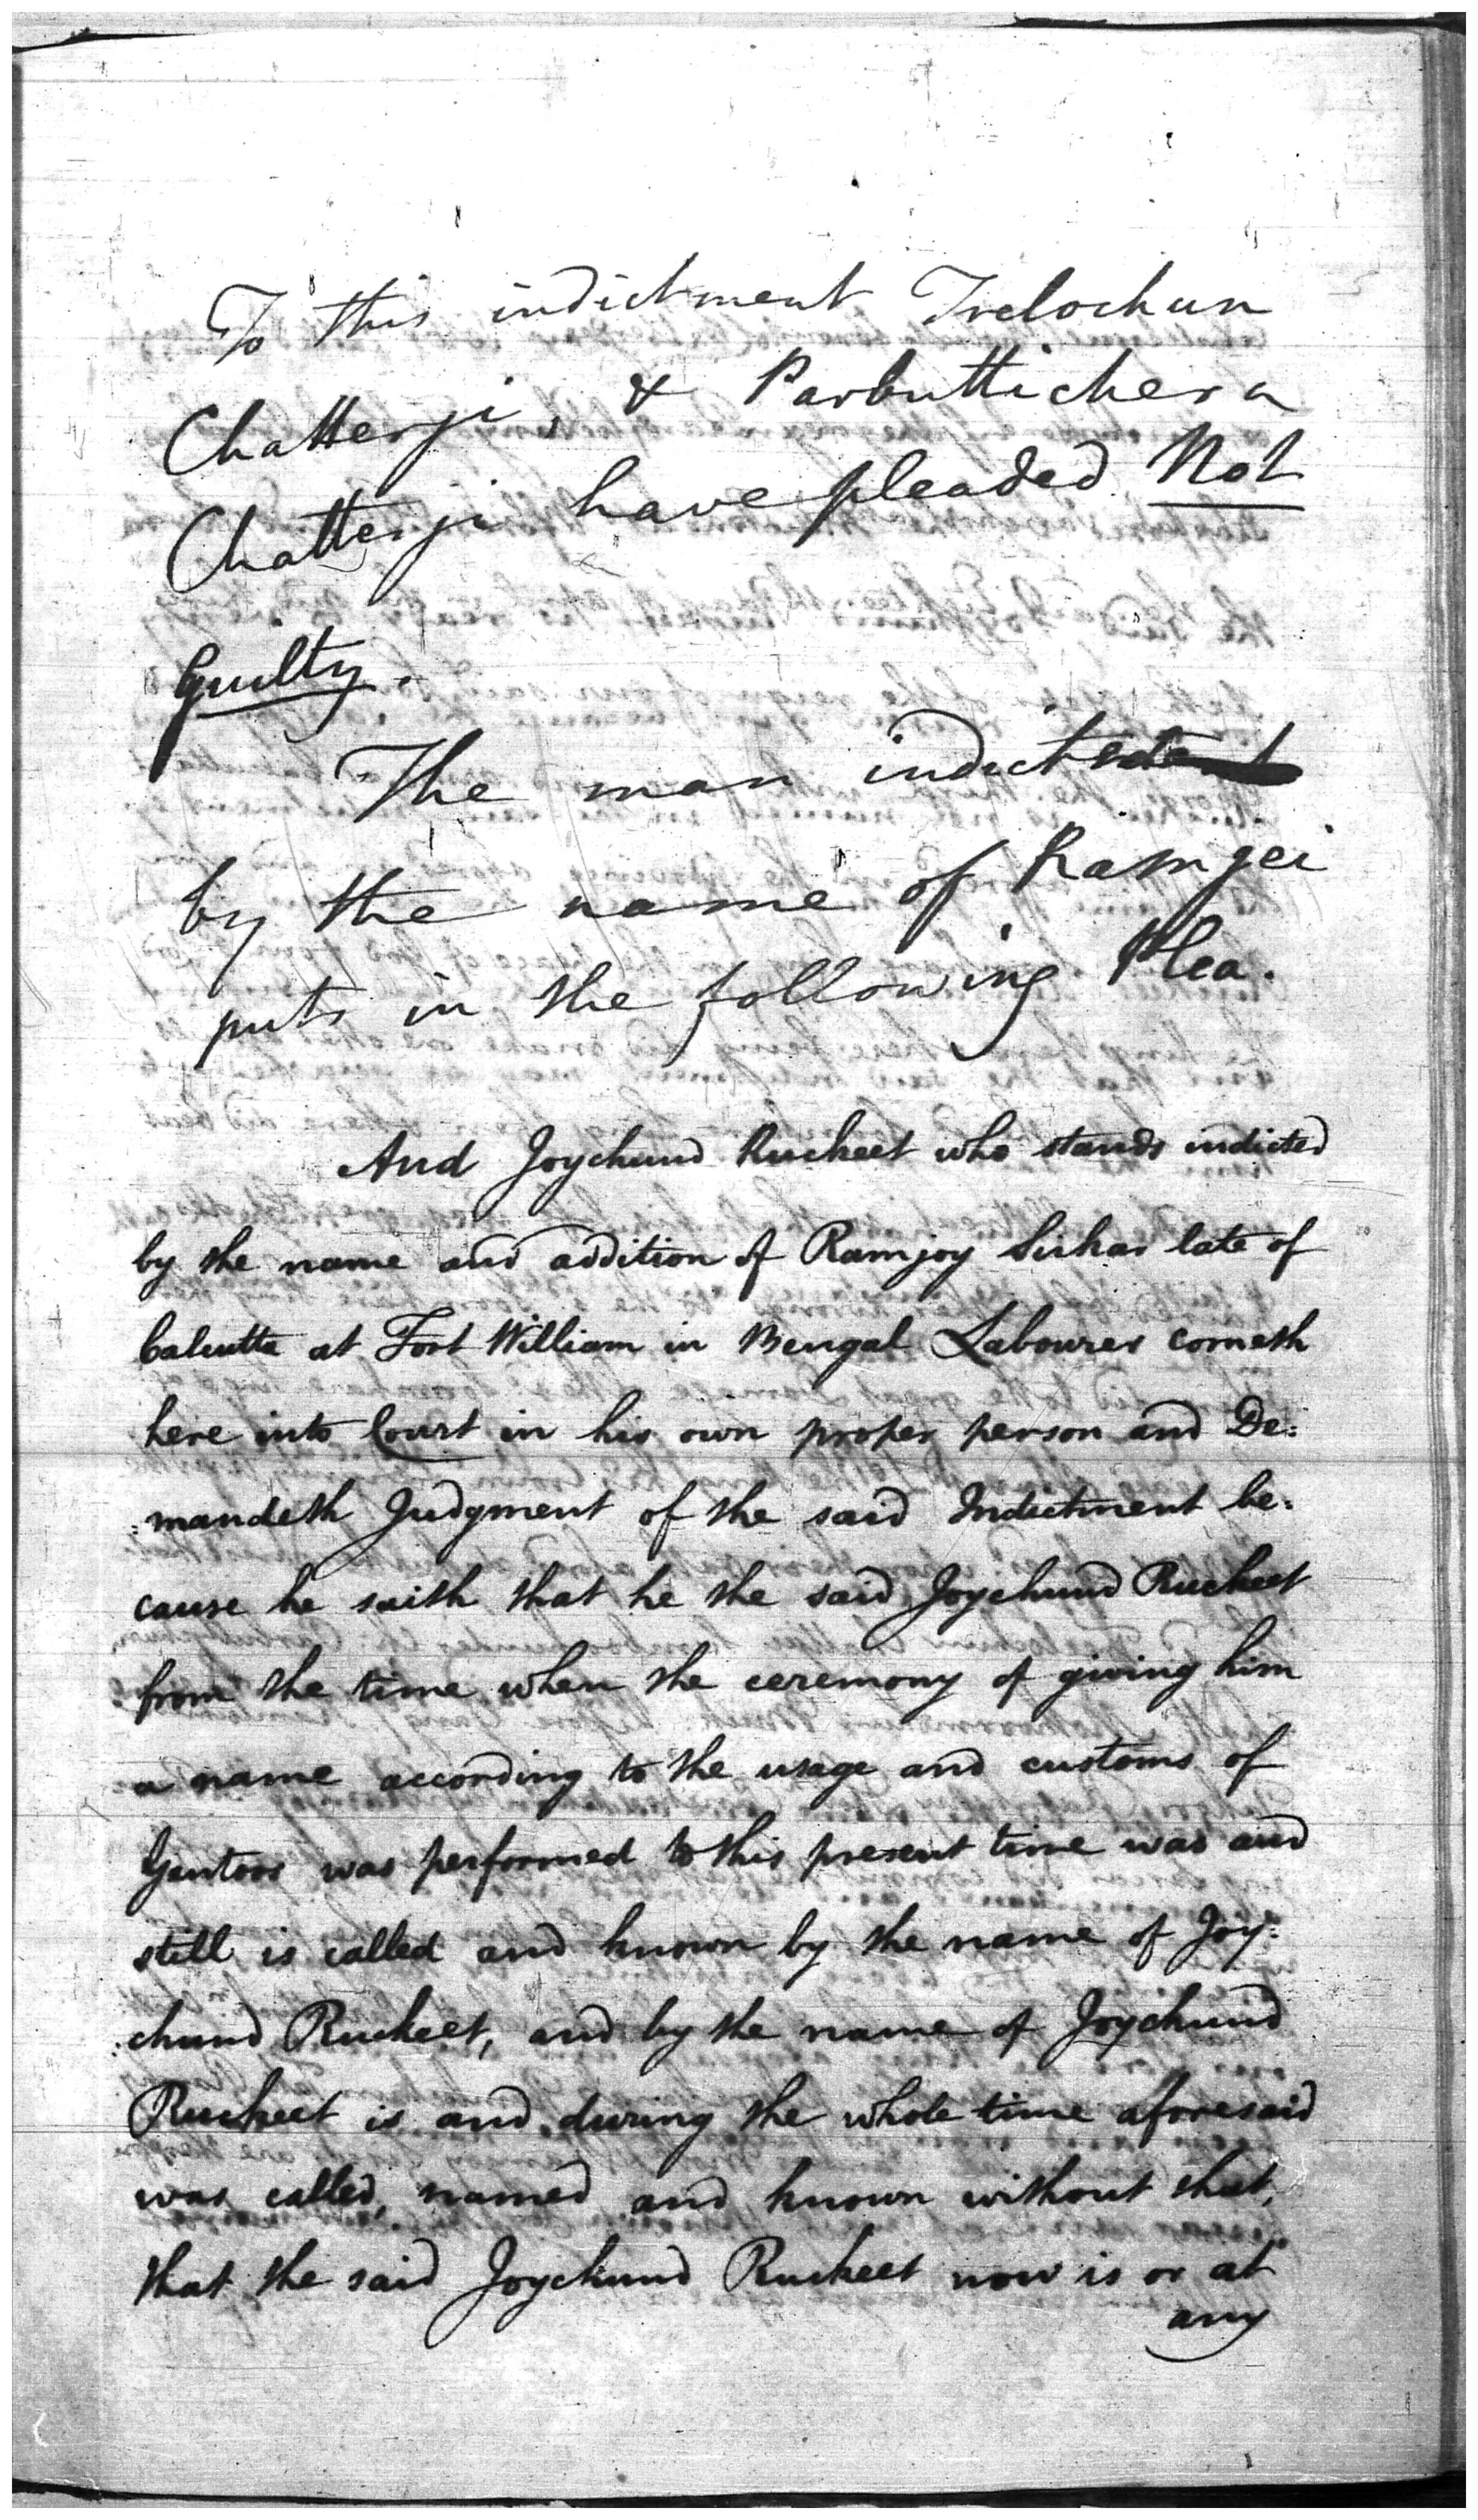 To this indictment Trelochun
Chatterji, & Parbuttichera
Chatterji have pleaded Not
Guilty.
The man indicted
by the name of Ramjei
puts in the following Plea.
And Joychund Ruckeet who stands indicted
by the name and addition of Ramjoy Sirkar late of
Calcutta at Fort William in Bengal Labourer cometh
here into Court in his own proper person and De:
:mandeth Judgment of the said Indictment be:
cause he saith that he the said Joychund Ruckeet
from the time when the ceremony of giving him
a name according to the usage and customs of
Gentoos was performed to this present time was and
still is called and known by the name of Joy:
:chund Ruckeet, and by the name of Joychund
Ruckeet is and during the whole time aforesaid
was called, named and known without that,
that the said Joychund Ruckeet now is or at
any